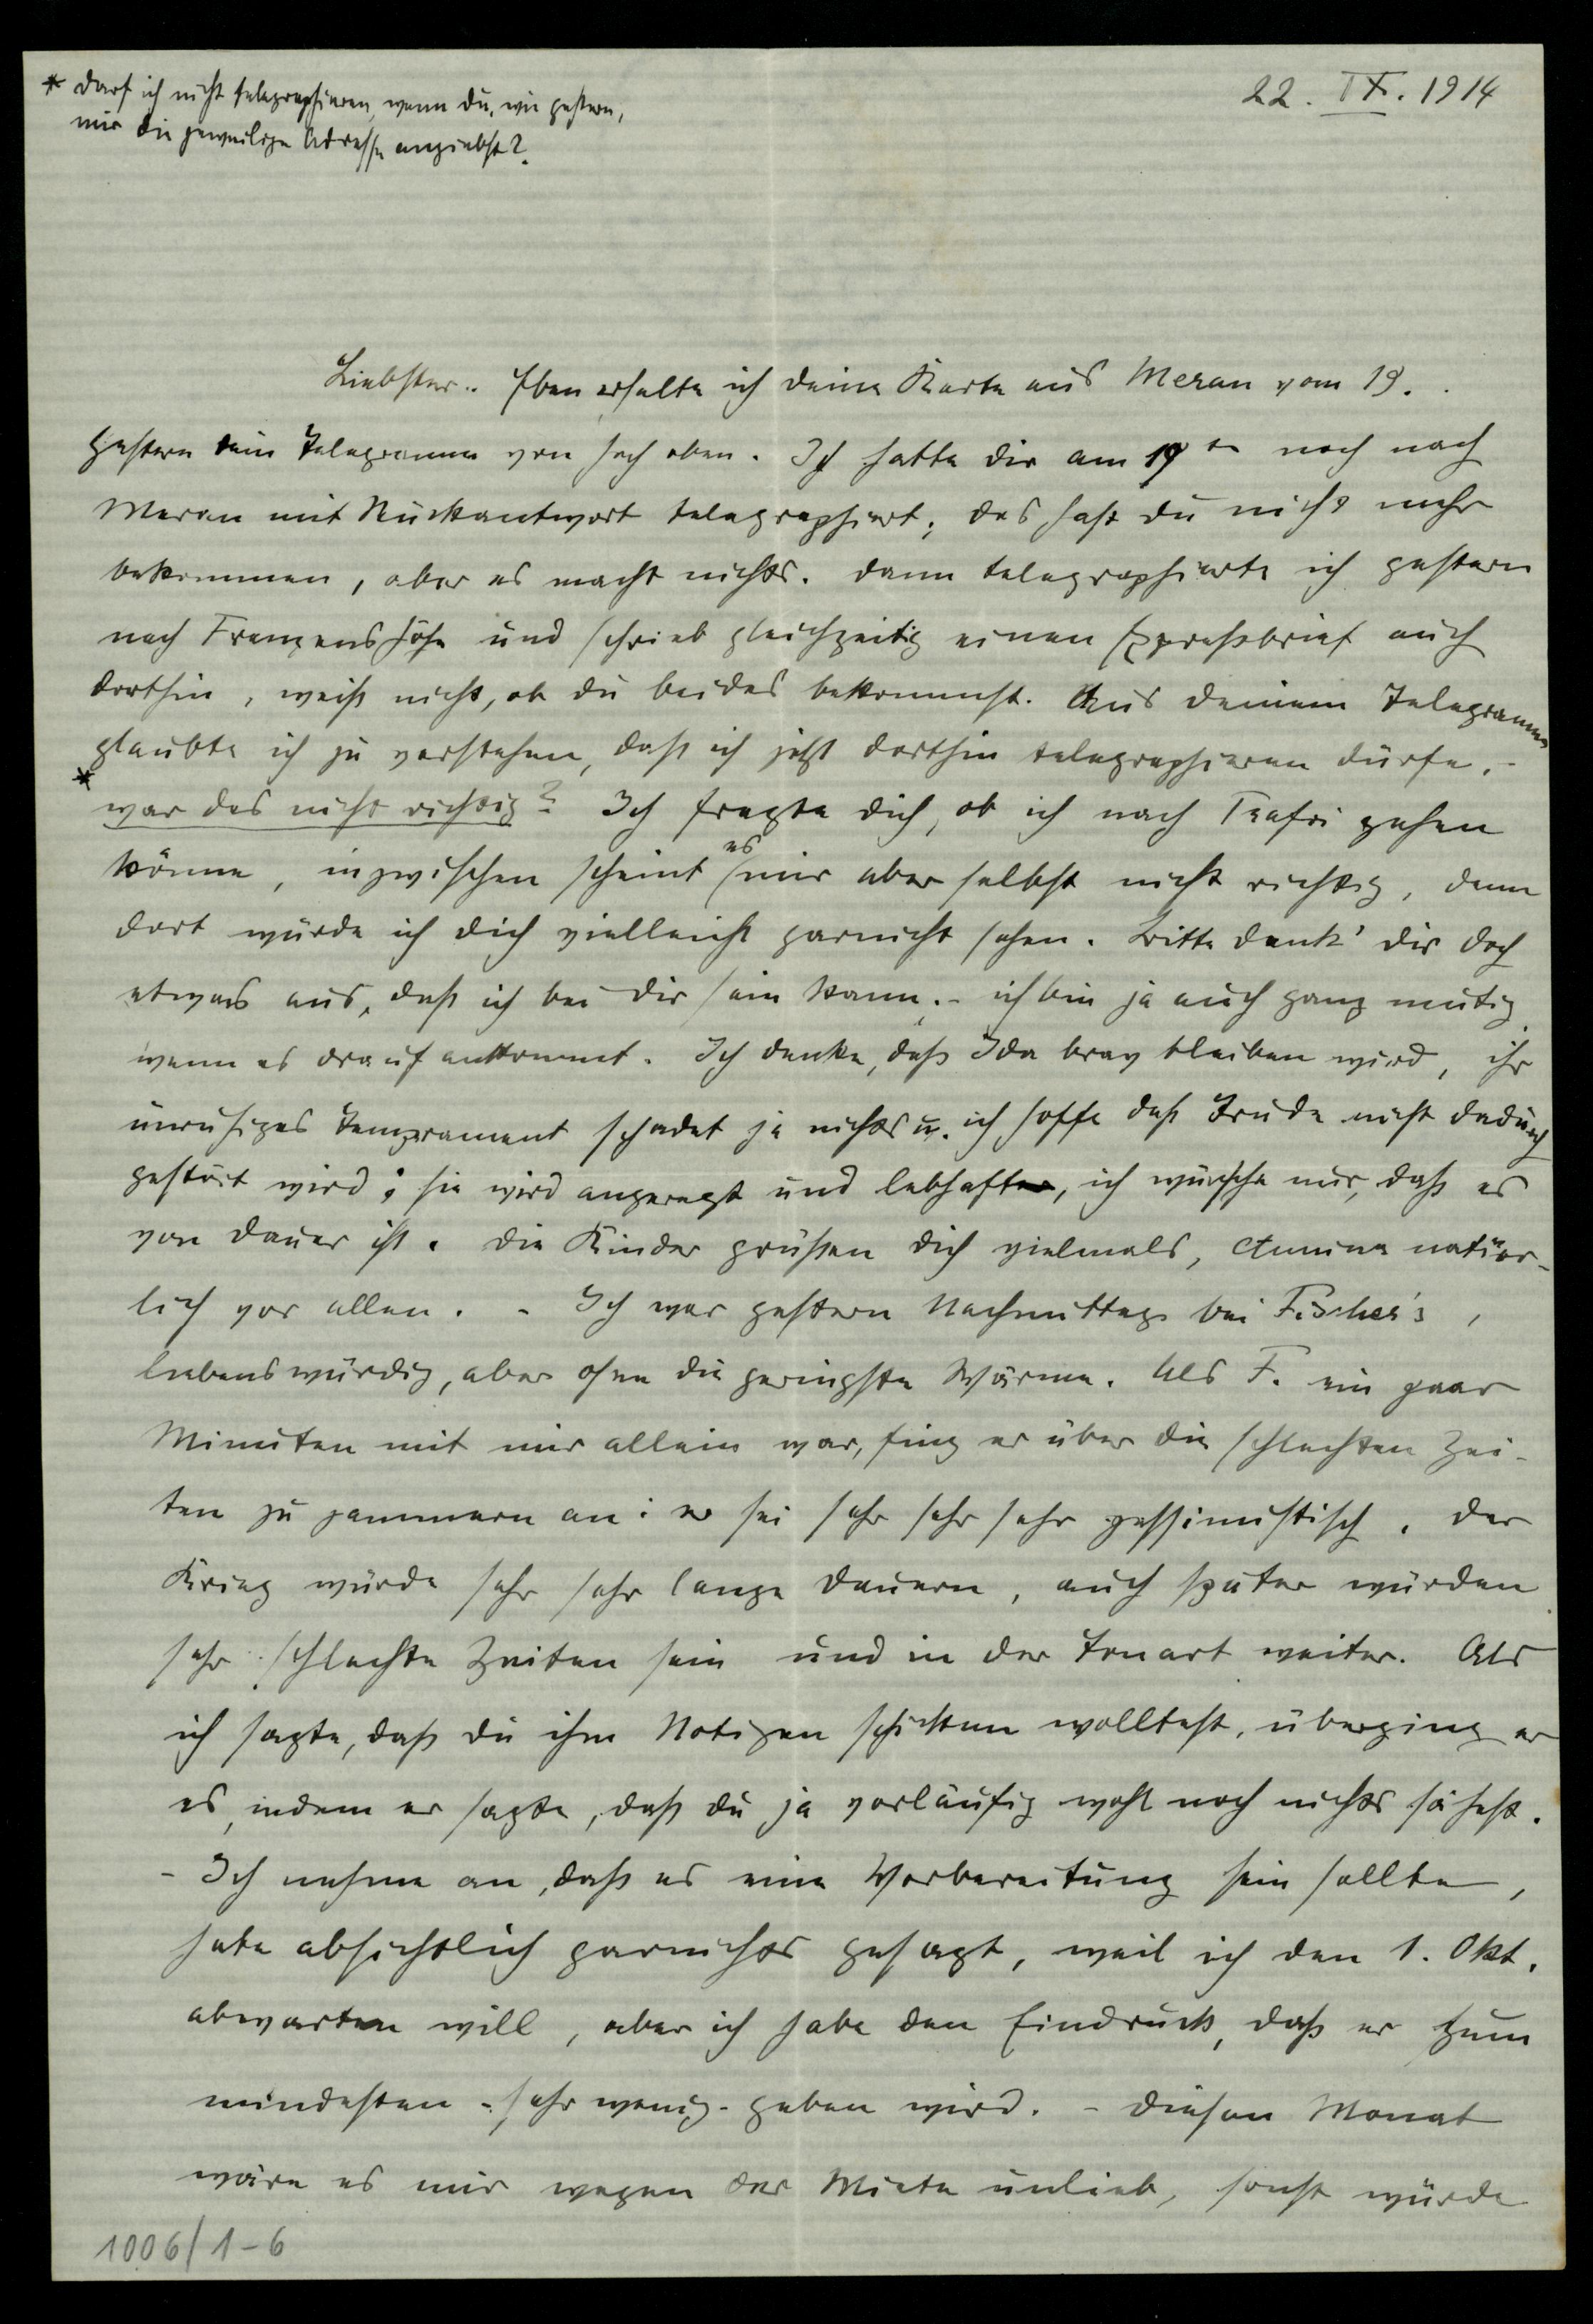 * Darf ich nicht telegraphieren, wenn du, wie gestern,
mir die jeweilige Adresse angiebst?
22. IX. 1914
Liebster.. Eben erhalte ich deine Karte aus Meran vom 19. .
Gestern dein Telegramm von hoch oben. Ich hatte dir am 19ten noch nach
Meran mit Rückantwort telegraphiert; das hast du nicht mehr
bekommen, aber es macht nichts. Dann telegraphierte ich gestern
nach Franzenshöhe und schrieb gleichzeitig einen Expreßbrief auch
dorthin, weiß nicht, ob du beides bekommst. Aus deinem Telegramm
glaubte ich zu verstehen, daß ich jetzt dorthin telegraphieren dürfe. -
* war das nicht richtig? Ich fragte dich, ob ich nach Trafoi gehen
könne, inzwischen scheint es mir aber selbst nicht richtig, denn
dort würde ich dich vielleicht garnicht sehen. Bitte denk' dir doch
etwas aus, daß ich bei dir sein kann. - ich bin ja auch ganz mutig
wenn es drauf ankommt. Ich denke, daß Ida brav bleiben wird, ihr
unruhiges Temperament schadet ja nichts u. ich hoffe daß Trude nicht dadurch
gestört wird; sie wird angeregt und lebhafter, ich wünsche nur, daß es
von Dauer ist. Die Kinder grüßen dich vielmals, Annina natür-
lich vor allen. - Ich war gestern Nachmittag bei Fischer's,
liebenswürdig, aber ohne die geringste Wärme. Als F. ein paar
Minuten mit mir allein war, fing er über die schlechten Zei-
ten zu jammern an: er sei sehr sehr sehr pessimistisch. Der
Krieg würde sehr sehr lange dauern, auch später würden
sehr schlechte Zeiten sein und in der Tonart weiter. Als
ich sagte, daß du ihm Notizen schicken wolltest, überging er
es, indem er sagte, daß du ja vorläufig wohl noch nichts sähest.
- Ich nehme an, daß es eine Vorbereitung sein sollte,
habe absichtlich garnichts gesagt, weil ich den 1. Okt.
abwarten will, aber ich habe den Eindruck, daß er zum
mindesten - sehr wenig - geben wird. - Diesen Monat
wäre es mir wegen der Miete unlieb, sonst würde
1006/1-6